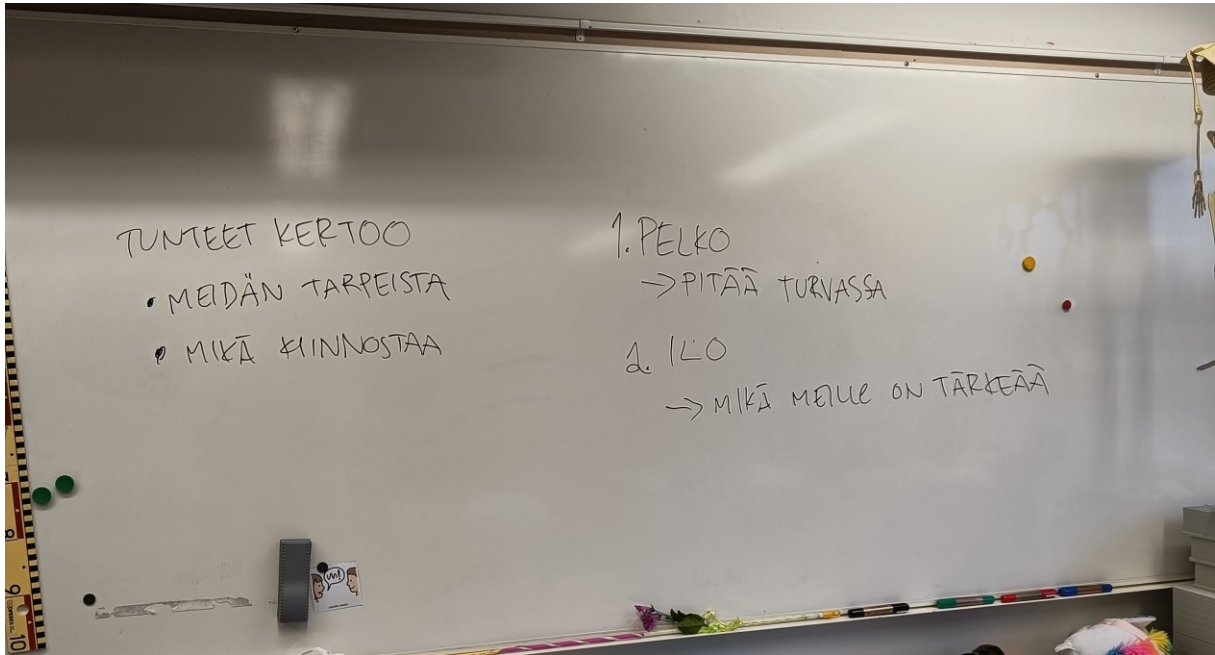 TUNTEET KERTOO
• MEIDÄN TARPEISTA
• MIKÄ KIINNOSTAA
1. PELKO
→ PITÄÄ TURVASSA
2. ILO
→ MIKÄ MEILLE ON TÄRKEÄÄ
8
9
10